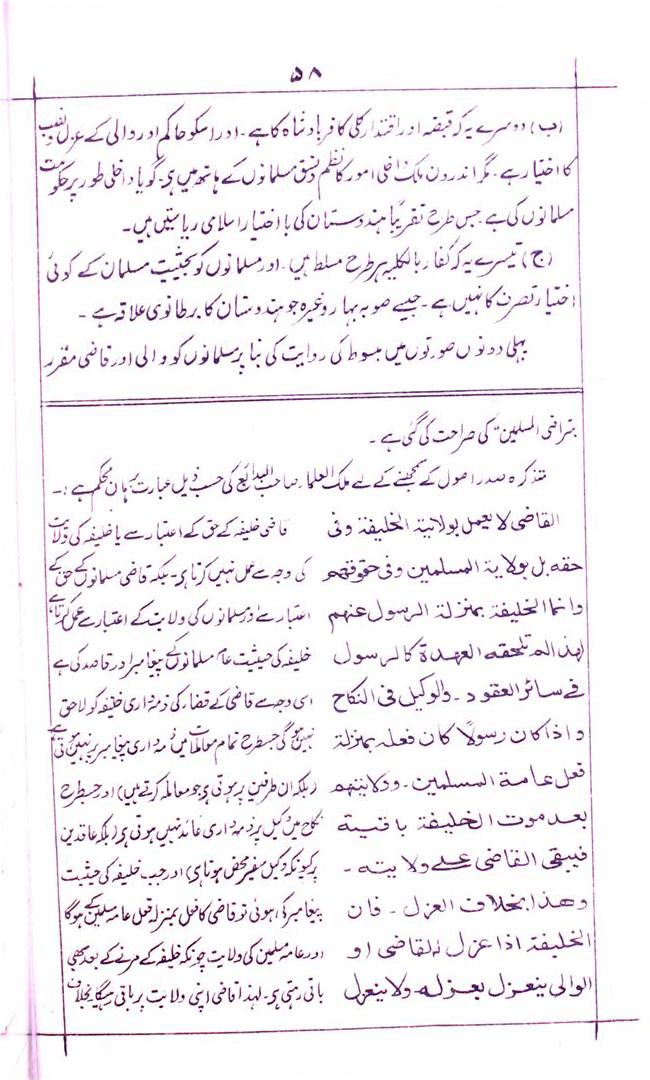 ۵۸
(ب) دوسرے یہ کہ قبضہ اور اقتدار کلی کافر بادشاہ کا ہے۔ اور اسکو حاکم اور والی کے عزل و نصب
کا اختیار ہے۔ مگر اندرون ملک داخلی امور کا نظم و نسق مسلمانوں کے ہاتھ میں ہی۔ گویا داخلی طور پر حکومت
مسلمانوں کی ہے جس طرح تقریباً ہندوستان کی با اختیار اسلامی ریاستیں ہیں۔
(ج) تیسرے یہ کہ کفار بالکلیہ ہر طرح مسلط ہیں۔ اور مسلمانوں کو بحیثیت مسلمان کے کوئی
اختیار تصرف کا نہیں ہے۔ جیسے صوبہ بہار وغیرہ جو ہندوستان کا برطانوی علاقہ ہے۔
پہلی دونوں صورتوں میں مبسوط کی روایت کی بنا پر مسلمانوں کو والی اور قاضی مقرر
بتراضی المسلمین" کی صراحت کی گئی ہے۔
تذکرہ صدر اصول کے سمجھنے کے لیے ملک العلماء صاحب البدائع کی حسب ذیل عبارت برہان محکم ہے :۔
القاضی لا یعمل بولایۃ الخلیفۃ وفی
حقہ بل بولایۃ المسلمین وفی حقوقہم
وانما الخلیفۃ بمنزلۃ الرسول عنہم
لہذا لم تلحقہ العہدۃ کالرسول
فے سائر العقود۔ والوکیل فی النکاح
واذا کان رسولاً کان فعلہ بمنزلۃ
فعل عامۃ المسلمین۔ وولایتہم
بعد موت الخلیفۃ باقیۃ
فیبقی القاضی علے ولایتہ۔
وھذا بخلاف العزل۔ فان
الخلیفۃ اذا عزل القاضی او
الوالی ینعزل بعزلہ ولا ینعزل
قاضی خلیفہ کے حق کے اعتبار سے یا خلیفہ کی ولایت
کی وجہ سے عمل نہیں کرتا ہی۔ بلکہ قاضی مسلمانوں کے حق کے
اعتبار سے اور مسلمانوں کی ولایت کے اعتبار سے عمل کرتا ہے
خلیفہ کی حیثیت عام مسلمانوں کے پیغامبر اور قاصد کی ہے
اسی وجہ سے قاضی کے قضاء کی ذمہ داری خلیفہ کو لاحق
نہیں ہوگی جسطرح تمام معاملات میں ذمہ داری پیغامبر پر نہیں ہوتی ہے
(بلکہ ان طرفین پر ہوتی ہی جو معاملہ کرتے ہیں) اور جسطرح
نکاح میں وکیل پر ذمہ داری عائد نہیں ہوتی ہی (بلکہ عاقدین
پر کیونکہ وکیل سفیر محض ہوتا ہی) اور جب خلیفہ کی حیثیت
پیغامبر کی ہوئی تو قاضی کا فعل بمنزلہ فعل عامہ مسلمین کے ہوگا
اور عامہ مسلمین کی ولایت چونکہ خلیفہ کے مرنے کے بعد بھی
باقی رہتی ہی۔ لہذا قاضی اپنی ولایت پر باقی رہیگا بخلاف